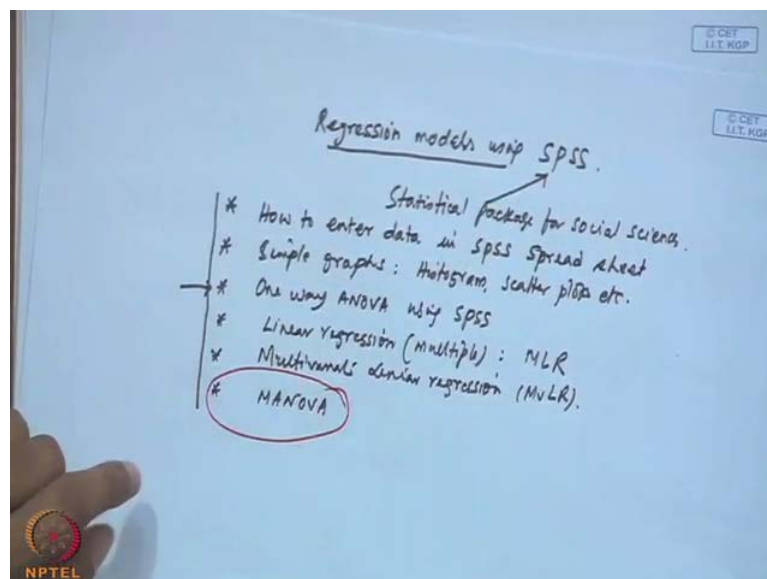 © CET
I.I.T. KGP
© CET
I.I.T. KGP
Regression models using SPSS.
Statistical package for social science.
* How to enter data in SPSS Spread sheet
* Simple graphs: Histogram, scatter plots etc.
* One way ANOVA using SPSS
* Linear regression (multiple): MLR
* Multivariate linear regression (MvLR).
* MANOVA
NPTEL